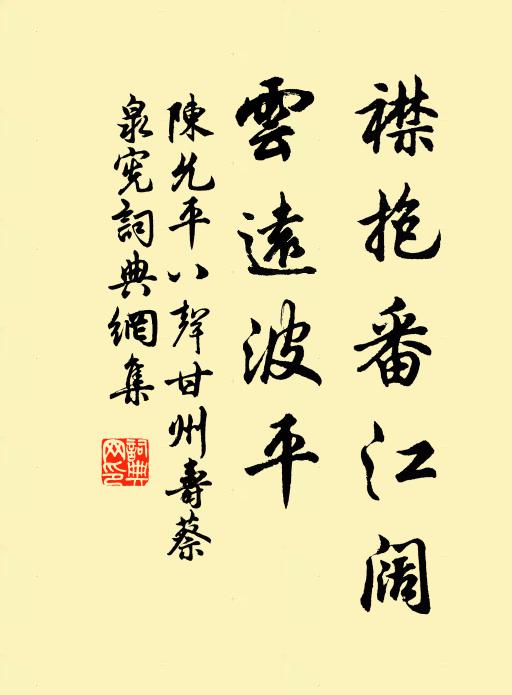 襟抱番江阔
雲遠波平
陳允平八聲甘州壽蔡
泉憲詞典網集
詞典網印